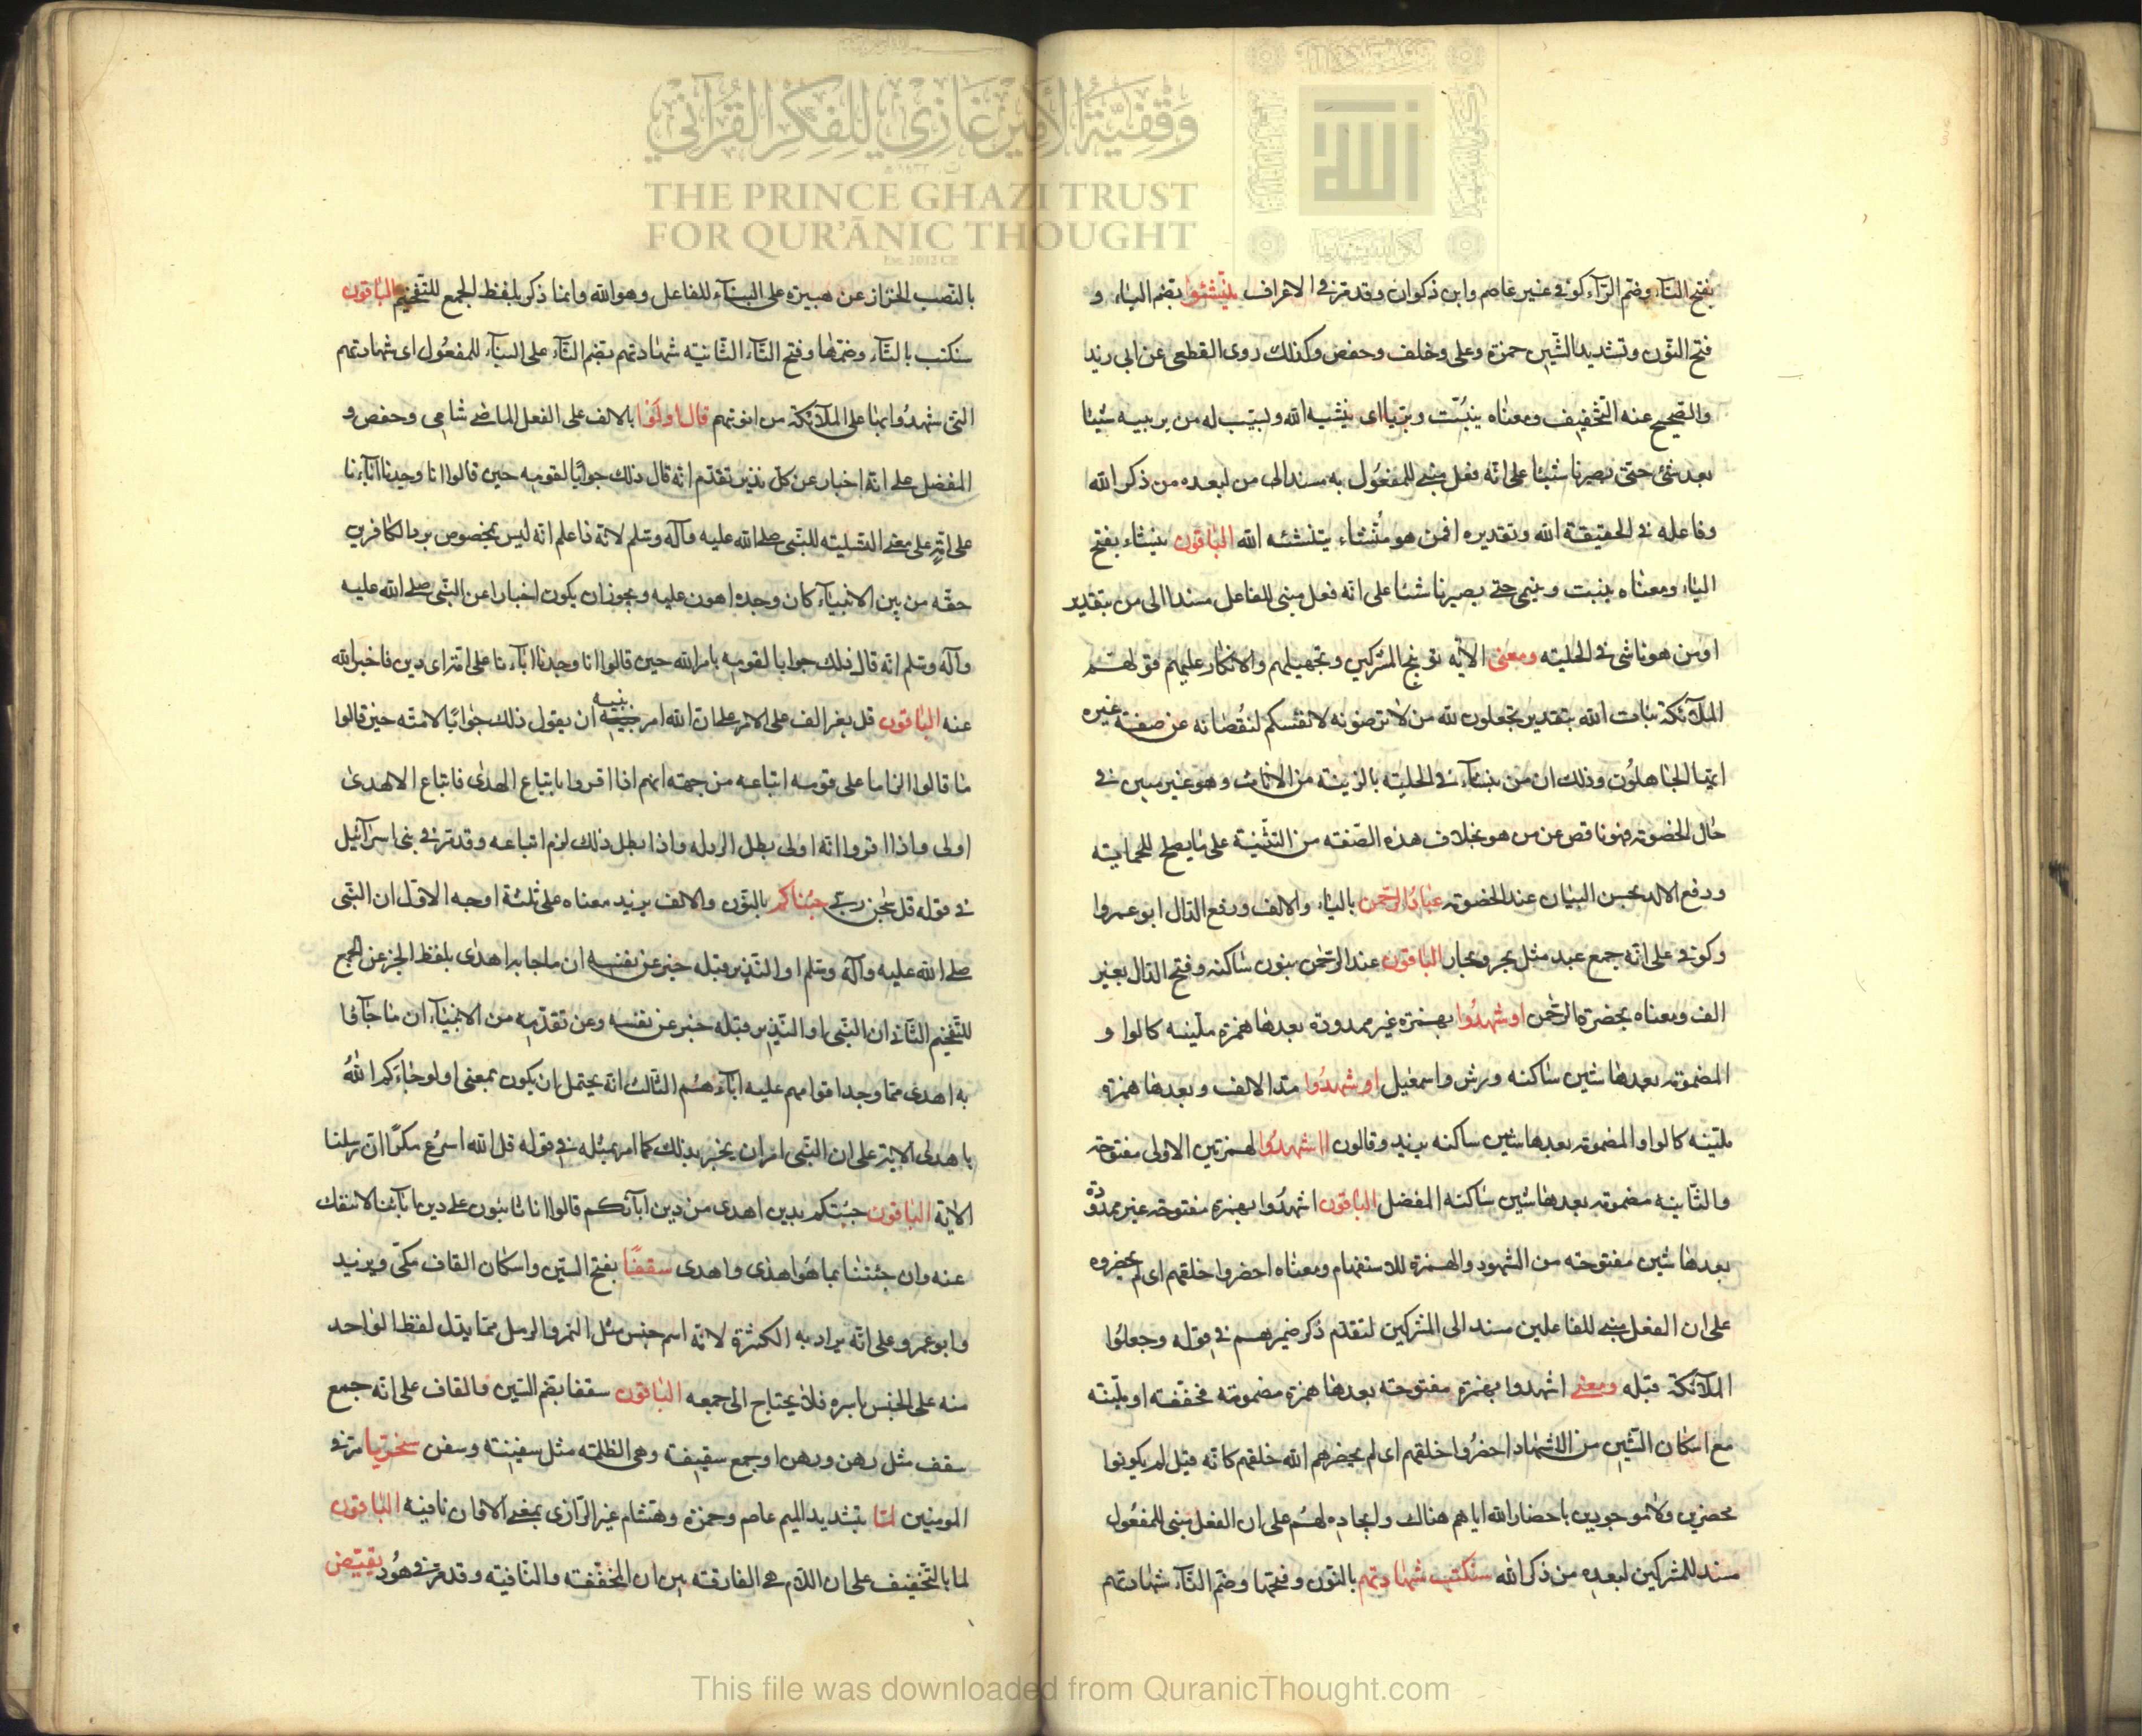 وقفية الأمير غازي للفكر القرآني
THE PRINCE GHAZI TRUST
FOR QUR'ĀNIC THOUGHT
Est. 2012 CE
بفتح التآء وضم الرآء كوفى غير عاصم وابن ذكوان وقد مرّ فى الاعراف ينشؤا بضم الياء و
فتح النّون وتشديد الشّين حمزة وعلى وخلف وحفص وكذلك روى القطعى عن ابى زيد
والصّحيح عنه التّخفيف ومعناه ينبّت ويربّا اى ينشيه الله ويسبب له من يربيه شيئا
بعد شئ حتى يصير ناشئا على انّه فعل مبنى للمفعُول به مسند الى من لبعده من ذكر الله
وفاعله فى الحقيقة الله وتقديره افمن هو مُنشاء ينشئه الله الباقون ينشاء بفتح
الياء ومعناه ينبت وينمى حتى يصير ناشئا على انّه فعل مبنى للفاعل مسندا الى من بتقدير
اومن هو ناشى فى الحلية ومعنى الآية توبيخ المشركين وتجهيلهم والانكار عليهم قولهم
الملآئكة بنات الله بتقدير تجعلون لله من لا ترضونه لانفسكم لنُقصانه عن صفة غيره
ايّها الجاهلُون وذلك ان من ينشآء فى الحلية بالزينة من الاناث وهو غير مبين فى
حال الخصومة فهو ناقص عن من هو بخلاف هذه الصّفة من التنشية على ما يصلح للحماية
ودفع الالد بحسن البيان عند الخصومة عبَادُ الرّحمن بالباء والالف ورفع الدّال ابو عمروا
وكوفى على انّه جمع عبد مثل بحر وبحار الباقون عند الرّحمن بنون ساكنه وفتح الدّال بغير
الف ومعناه بحضرة الرّحمن اوشهدُوا بهمزة غير ممدودة بعدها همزة مليّنه كالوا و
المضمومة بعدها شين ساكنه ورش واسمعيل اوشهدُوا بمد الالف وبعدها همزة
مليّنه كالواو المضمومة بعدها شين ساكنه يزيد وقالون ااشهدُوا بهمزتين الاولى مفتوحة
والثّانيه مضمومة بعدها شين ساكنه المفضل الباقون اشهدُوا بهمزة مفتوحة غير ممدُودة
بعدها شين مفتوحة من الشهود والهمزة للاستفهام ومعناه احضروا خلقهم اى لم يحضروه
على ان الفعل مبنى للفاعلين مسند الى المشركين لتقدّم ذكر ضميرهم فى قوله وجعلُوا
الملآئكة قبله ومعنى اشهدوا بهمزة مفتوحة بعدها همزة مضمومة مخفّفة او مليّنة
مع اسكان الشّين من الاشهاد احضُروا خلقهم اى لم يحضرهم الله خلقهم كانّه قيل لم يكونوا
محضرين ولا موجودين باحضار الله اياهم هناك وايجاده لهُم على ان الفعل مبنى للمفعُول
مسند للمشركين لبعده من ذكر الله سنكتب شهادتهم بالنّون وفتحها وضمّ التآء شهادتهم
بالنّصب الخزاز عن هبيرة على البنآء للفاعل وهو الله وانما ذكر بلفظ الجمع للتّفخيم الباقون
ستكتب بالتّاء وضمّها وفتح التّآء الثّانية شهادتهم بضم التّآء على البنآء للمفعُول اى شهادتهم
التى شهدُوا بها على الملآئكة من انوثتهم قال اولَو بالالف على الفعل الماضى شامى وحفص و
المفضل على انّه اخبار عن كلّ نذير تقدّم انّه قال ذلك جوابًا لقومه حين قالوا انا وجدنا اباءنا
على امّة على معنى التسلية للنّبى صلى الله عليه وآله وسلم لانّه اذا علم انّه ليس بمخصوص بردّ الكافرين
حقّه من بين الانبيآء كان وجده اهون عليه ويجوز ان يكون اخبارا عن النّبى صلى الله عليه
وآله وسلم انّه قال ذلك جوابا لقومه بامر الله حين قالوا انا وجدنا اباءنا على امّة اى دين فاخبر الله
عنه الباقون قل بغير الف على الامر على ان الله امر نبيه ان يقول ذلك جوابًا لامّته حين قالوا
ما قالوا الزاما على قومه اتباعه من جهة انهم اذا اقروا باتباع الهدى فاتباع الاهدى
اولى واذا اقروا انّه اولى بطل الرد له واذا بطل ذلك لزم اتباعه وقد مرّ فى بنى اسرآئيل
فى قوله قل سبحان ربّى جئناكم بالنّون والالف يزيد معناه على ثلثة اوجه الاوّل ان النّبى
صلى الله عليه وآله وسلم او النّذير قبله خبر عن نفسه ان ما جاء به اهدى بلفظ الخبر عن الجمع
للتّفخيم الثّانى ان النّبى او النّذير قبله خبر عن نفسه وعن تقدّمه من الانبيآء ان ما جآؤا
به اهدى ممّا وجدا قوامهم عليه ابآءهُم الثّالث انّه يحتمل ان يكون بمعنى اولو جاءَكم اللهُ
باهدى الاية على ان النّبى امر ان يخبر بذلك كما امر بمثله فى قوله قل الله اسرعُ مكرًا ان رسلنا
الاية الباقون جئتكم بدين اهدى من دين ابآئكم قالوا انا ثابتون على دين ابآئنا لا ننفك
عنه وان جئتنا بما هُو اهدى واهدى سقفًا بفتح السّين واسكان القاف مكّى ويزيد
وابو عمرو على انّه يراد به الكثرة لانّه اسم جنس مثل التمر والرمل ممّا يدّل لفظ الواحد
منه على الجنس باسره فلا يحتاج الى جمعه الباقون سقفا بضم السّين والقاف على انّه جمع
سقف مثل رهن ورهن او جمع سقيفة وهى الظلّة مثل سفينة وسفن سخريا مرّ فى
المومنين لمّا بتشديد الميم عاصم وحمزة وهشام غير الرّازى بمعنى الا فان نافيه الباقون
لما بالتّخفيف على ان اللام هى الفارقة بين ان المخفّفة والنّافية وقد مرّ فى هُود يقيّض
This file was downloaded from QuranicThought.com